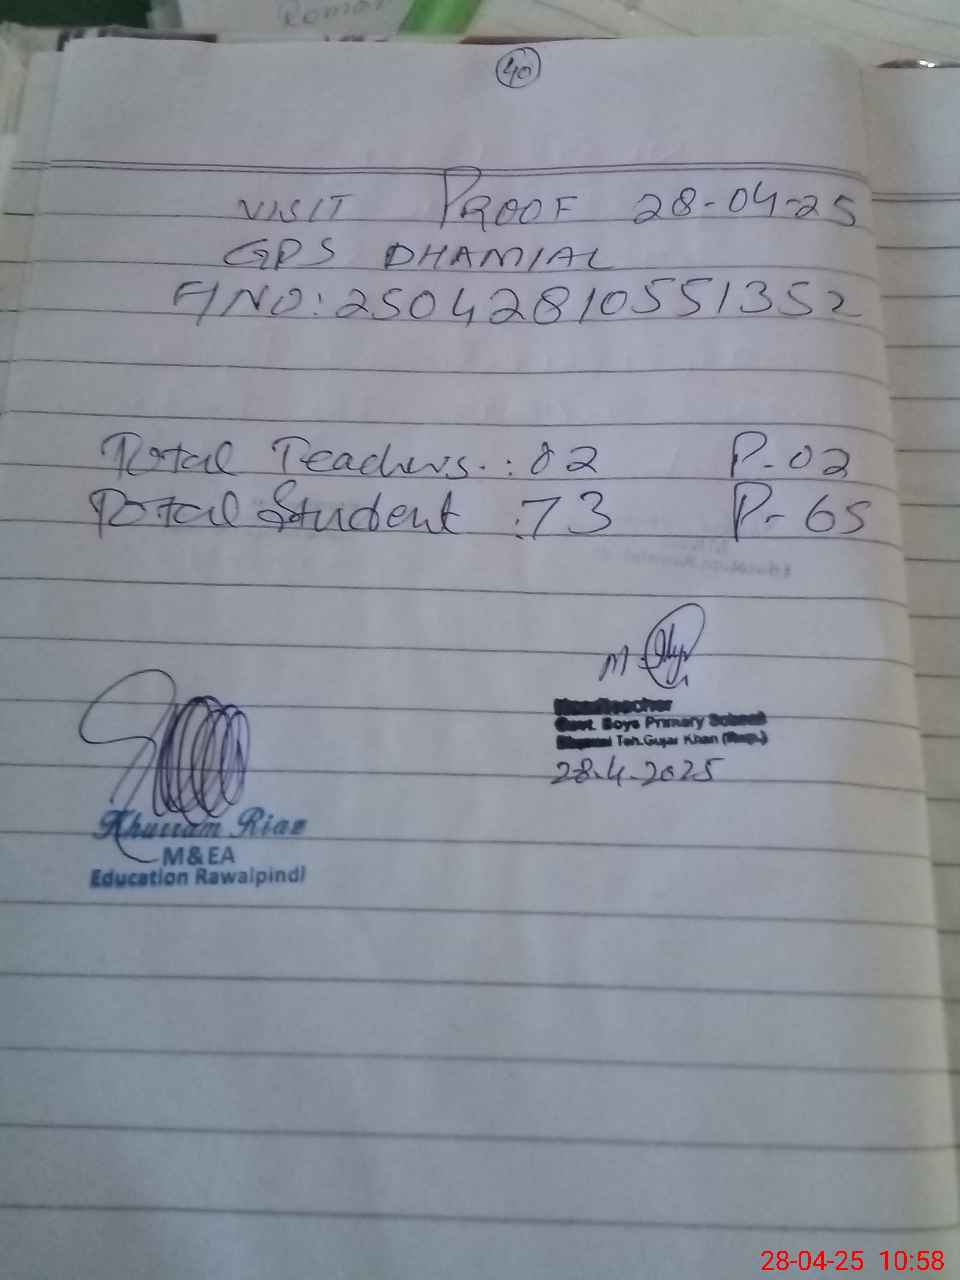 Roman
40
VISIT PROOF 28-04-25
GPS DHAMIAL
F/NO: 25042810551352
Total Teachers.: 02 P-02
Total Student : 73 P- 65
M.
Headteacher
Govt. Boys Primary School
Teh. Gujar Khan (Rwp.)
28.4.2025
Khurram Riaz
M&EA
Education Rawalpindi
28-04-25 10:58